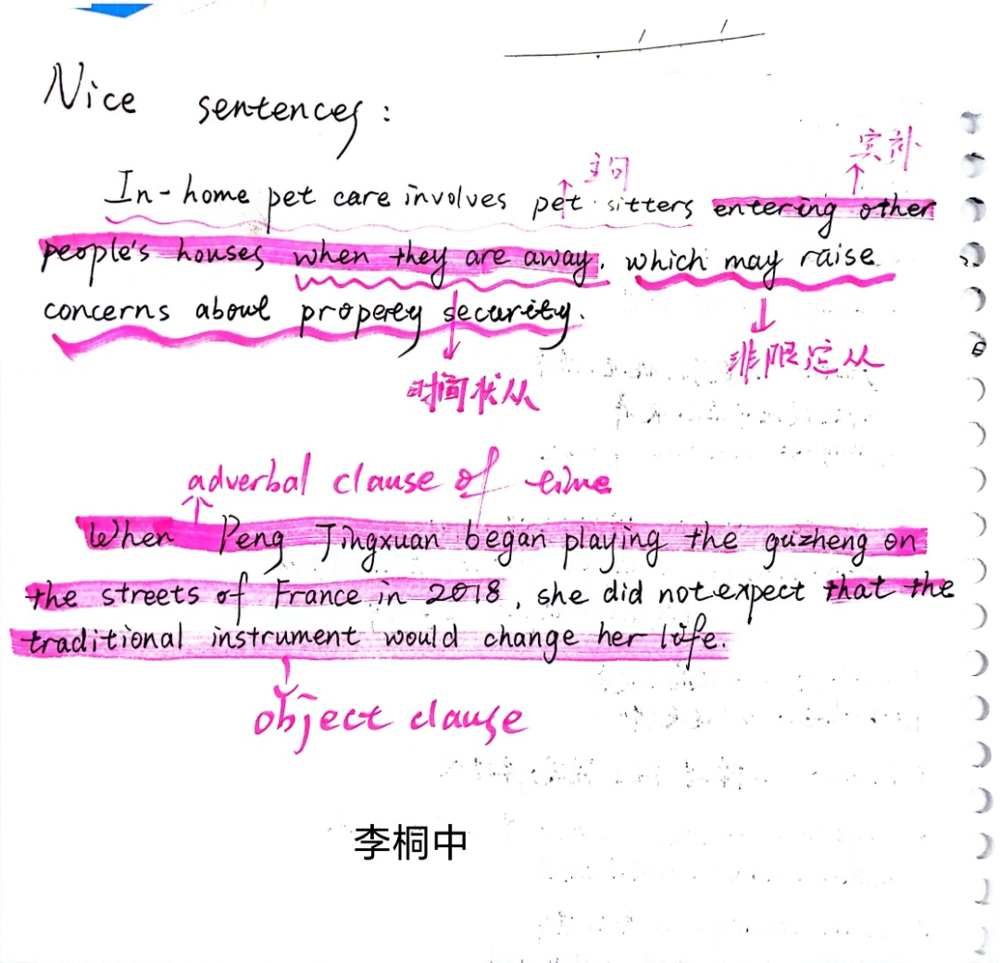 Nice sentences:
主句
宾补
In-home pet care involves pet sitters entering other
people's houses when they are away, which may raise
concerns about property security.
时间状从
非限定从
adverbal clause of time
When Peng Jingxuan began playing the guzheng on
the streets of France in 2018, she did not expect that the
traditional instrument would change her life.
object clause
李桐中